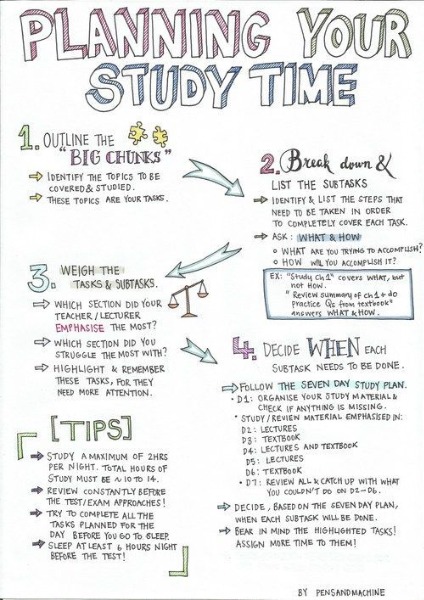 PLANNING YOUR
STUDY TIME
1. OUTLINE THE
"BIG CHUNKS"
IDENTIFY THE TOPICS TO BE
COVERED & STUDIED.
THESE TOPICS ARE YOUR TASKS.
2. Break down &
LIST THE SUBTASKS
IDENTIFY & LIST THE STEPS THAT
NEED TO BE TAKEN IN ORDER
TO COMPLETELY COVER EACH TASK.
ASK: WHAT & HOW
WHAT ARE YOU TRYING TO ACCOMPLISH?
HOW WILL YOU ACCOMPLISH IT?
EX: "Study Ch1" covers WHAT, but
not HOW.
"Review summary of ch1 + do
Practice Qs from textbook"
answers WHAT & HOW.
3. WEIGH THE
TASKS & SUBTASKS.
WHICH SECTION DID YOUR
TEACHER/LECTURER
EMPHASISE THE MOST?
WHICH SECTION DID YOU
STRUGGLE THE MOST WITH?
HIGHLIGHT & REMEMBER
THESE TASKS, FOR THEY
NEED MORE ATTENTION.
4. DECIDE WHEN EACH
SUBTASK NEEDS TO BE DONE.
FOLLOW THE SEVEN DAY STUDY PLAN.
• D1: ORGANISE YOUR STUDY MATERIAL &
CHECK IF ANYTHING IS MISSING.
• STUDY/REVIEW MATERIAL EMPHASISED IN:
D2: LECTURES
D3: TEXTBOOK
D4: LECTURES AND TEXTBOOK
D5: LECTURES
D6: TEXTBOOK
• D7: REVIEW ALL & CATCH UP WITH WHAT
YOU COULDN'T DO ON D2-D6.
DECIDE, BASED ON THE SEVEN DAY PLAN,
WHEN EACH SUBTASK WILL BE DONE.
BEAR IN MIND THE HIGHLIGHTED TASKS!
ASSIGN MORE TIME TO THEM!
[TIPS]
STUDY A MAXIMUM OF 2HRS
PER NIGHT. TOTAL HOURS OF
STUDY MUST BE ~ 10 TO 14.
REVIEW CONSTANTLY BEFORE
THE TEST/EXAM APPROACHES!
TRY TO COMPLETE ALL THE
TASKS PLANNED FOR THE
DAY BEFORE YOU GO TO SLEEP.
SLEEP AT LEAST 6 HOURS NIGHT
BEFORE THE TEST!
BY PENSANDMACHINE